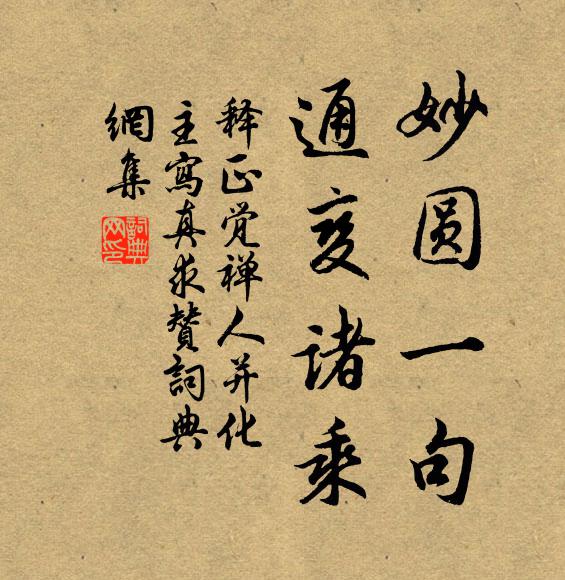 妙圆一句
通变诸乘
释正觉禅人并化
主写真求赞词典
网集
詞典
网印